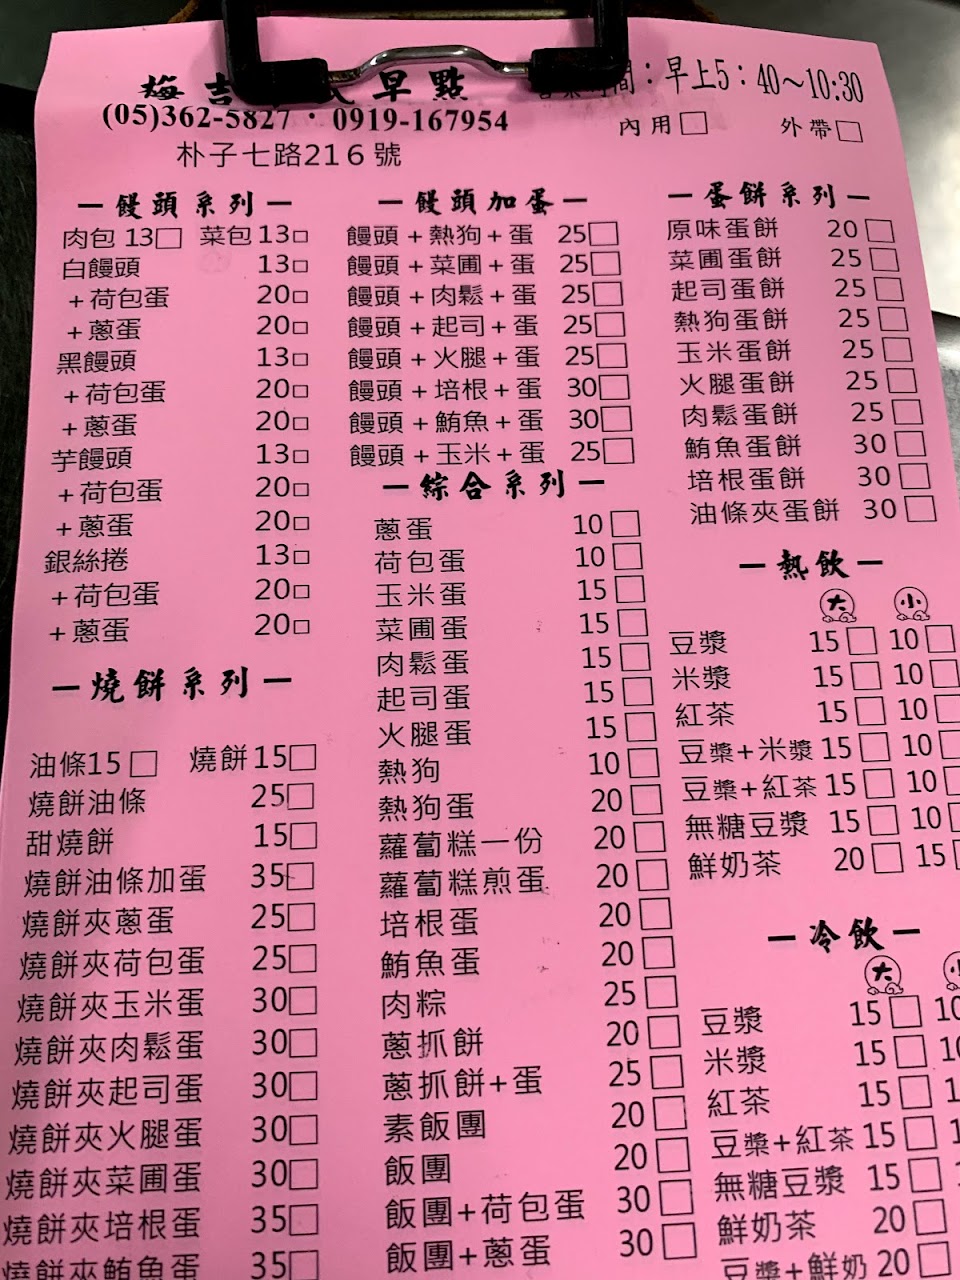 梅吉 早點
間：早上5：40～10:30
(05)362-5827 · 0919-167954
內用□ 外帶□
朴子七路216號
－饅頭系列－
肉包 13□ 菜包 13□
白饅頭 13□
+荷包蛋 20□
+蔥蛋 20□
黑饅頭 13□
+荷包蛋 20□
+蔥蛋 20□
芋饅頭 13□
+荷包蛋 20□
+蔥蛋 20□
銀絲捲 13□
+荷包蛋 20□
+蔥蛋 20□
－燒餅系列－
油條15□ 燒餅15□
燒餅油條 25□
甜燒餅 15□
燒餅油條加蛋 35□
燒餅夾蔥蛋 25□
燒餅夾荷包蛋 25□
燒餅夾玉米蛋 30□
燒餅夾肉鬆蛋 30□
燒餅夾起司蛋 30□
燒餅夾火腿蛋 30□
燒餅夾菜圃蛋 30□
燒餅夾培根蛋 35□
燒餅夾鮪魚蛋 35□
－饅頭加蛋－
饅頭+熱狗+蛋 25□
饅頭+菜圃+蛋 25□
饅頭+肉鬆+蛋 25□
饅頭+起司+蛋 25□
饅頭+火腿+蛋 25□
饅頭+培根+蛋 30□
饅頭+鮪魚+蛋 30□
饅頭+玉米+蛋 25□
－綜合系列－
蔥蛋 10□
荷包蛋 10□
玉米蛋 15□
菜圃蛋 15□
肉鬆蛋 15□
起司蛋 15□
火腿蛋 15□
熱狗 10□
熱狗蛋 20□
蘿蔔糕一份 20□
蘿蔔糕煎蛋 20□
培根蛋 20□
鮪魚蛋 20□
肉粽 25□
蔥抓餅 20□
蔥抓餅+蛋 25□
素飯團 20□
飯團 20□
飯團+荷包蛋 30□
飯團+蔥蛋 30□
－蛋餅系列－
原味蛋餅 20□
菜圃蛋餅 25□
起司蛋餅 25□
熱狗蛋餅 25□
玉米蛋餅 25□
火腿蛋餅 25□
肉鬆蛋餅 25□
鮪魚蛋餅 30□
培根蛋餅 30□
油條夾蛋餅 30□
－熱飲－
大 小
豆漿 15□ 10□
米漿 15□ 10□
紅茶 15□ 10□
豆漿+米漿 15□ 10□
豆漿+紅茶 15□ 10□
無糖豆漿 15□ 10□
鮮奶茶 20□ 15□
－冷飲－
大
豆漿 15□ 10
米漿 15□ 10
紅茶 15□
豆漿+紅茶 15□
無糖豆漿 15□
鮮奶茶 20□
豆漿+鮮奶 20□